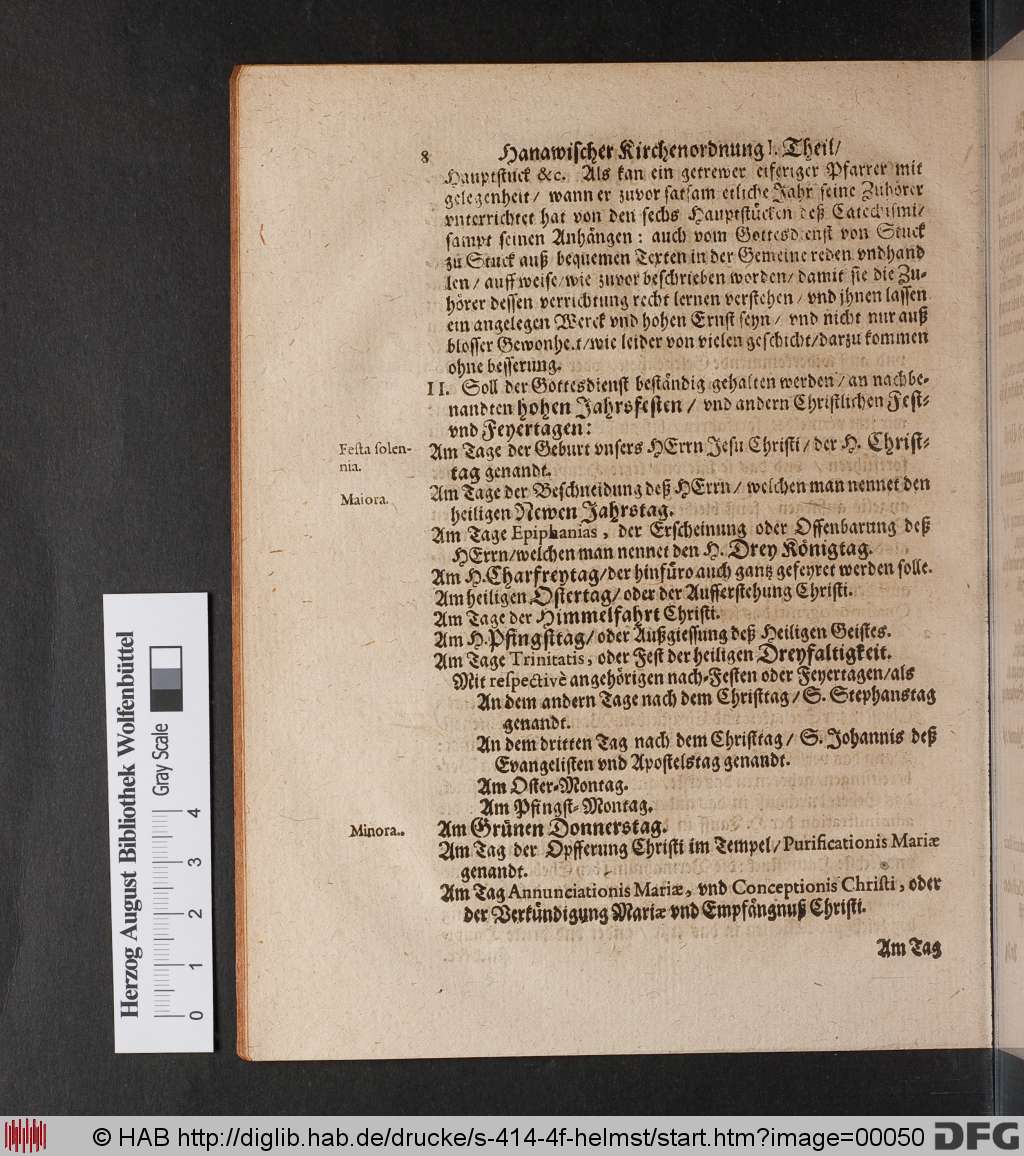 8 Hanawischer Kirchenordnung I. Theil/
Hauptstuck &c. Als kan ein getrewer eiferiger Pfarrer mit
gelegenheit/ wann er zuvor satsam etliche Jahr seine Zuhörer
vnterrichtet hat von den sechs Hauptstücken deß Catechismi/
sampt seinen Anhängen: auch vom Gottesdienst von Stuck
zu Stuck auß bequemen Texten in der Gemeine reden vndhand
len/ auff weise/wie zuvor beschrieben worden/ damit sie die Zu-
hörer dessen verrichtung recht lernen verstehen/ vnd jhnen lassen
ein angelegen Werck vnd hohen Ernst seyn/ vnd nicht nur auß
blosser Gewonheit/wie leider von vielen geschicht/darzu kommen
ohne besserung.
II. Soll der Gottesdienst beständig gehalten werden/ an nachbe-
nandten hohen Jahrsfesten/ vnd andern Christlichen Fest-
vnd Feyertagen:
Festa solen-
nia.
Am Tage der Geburt vnsers HErrn Jesu Christi/ der H. Christ-
tag genandt.
Maiora.
Am Tage der Beschneidung deß HErrn/ welchen man nennet den
heiligen Newen Jahrstag.
Am Tage Epiphanias, der Erscheinung oder Offenbarung deß
HErrn/welchen man nennet den H. Drey Königtag.
Am H. Charfreytag/der hinfüro auch gantz gefeyret werden solle.
Am heiligen Ostertag/ oder der Aufferstehung Christi.
Am Tage der Himmelfahrt Christi.
Am H. Pfingsttag/ oder Außgiessung deß Heiligen Geistes.
Am Tage Trinitatis, oder Fest der heiligen Dreyfaltigkeit.
Mit respectivè angehörigen nach-Festen oder Feyertagen/als
An dem andern Tage nach dem Christtag/ S. Stephanstag
genandt.
An dem dritten Tag nach dem Christtag/ S. Johannis deß
Evangelisten vnd Apostelstag genandt.
Am Oster-Montag.
Am Pfingst-Montag.
Minora.
Am Grünen Donnerstag.
Am Tag der Opfferung Christi im Tempel/ Purificationis Mariæ
genandt.
Am Tag Annunciationis Mariæ, vnd Conceptionis Christi, oder
der Verkündigung Mariæ vnd Empfängnuß Christi.
Am Tag
Herzog August Bibliothek Wolfenbüttel
Gray Scale
0 1 2 3 4
© HAB http://diglib.hab.de/drucke/s-414-4f-helmst/start.htm?image=00050 DFG